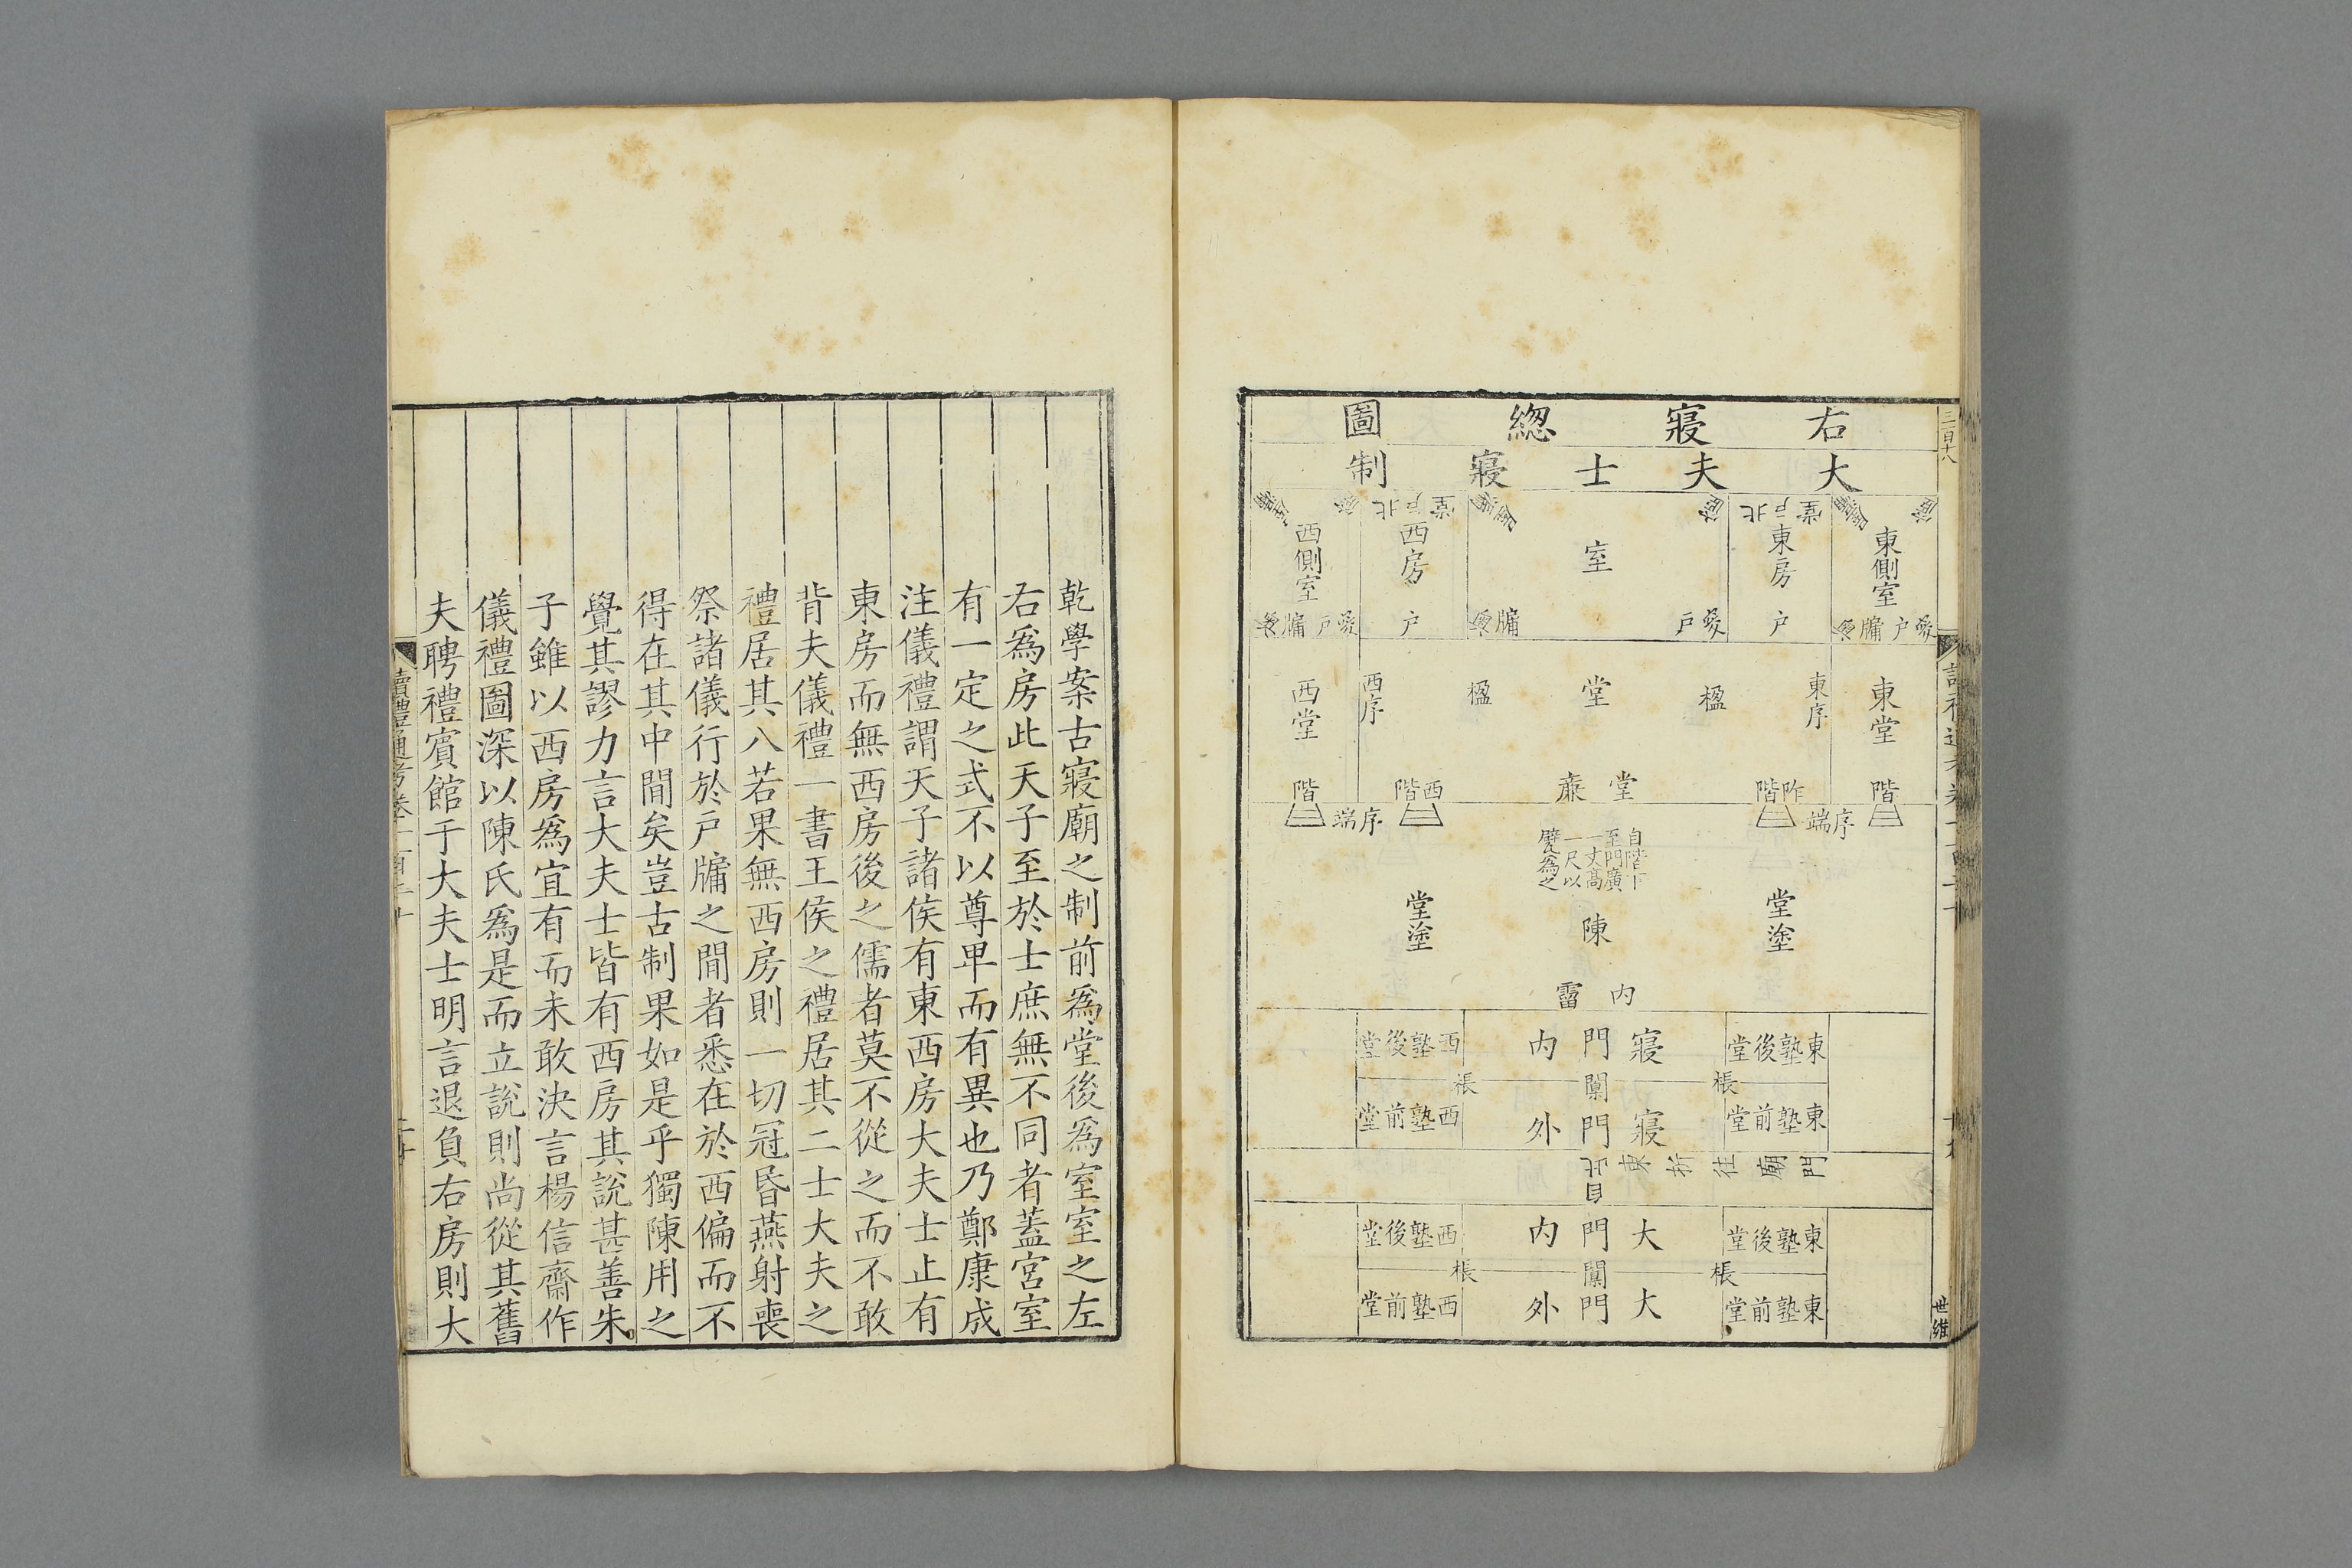 右寢緫圖
大夫士寢制
東側室
戶牖
北戶堂
東房
戶
室
戶
牖
北戶堂
西房
戶
西側室
戶牖
東堂
東序
楹
堂
楹
西序
西堂
階
阼階
堂廉
西階
階
序端
序端
自階下
至門廣
一丈高
一尺以
甓為之
堂塗
陳
堂塗
內霤
東塾後堂
寢門內
西塾後堂
棖
闑
棖
東塾前堂
寢門外
西塾前堂
自此東折往廟門
東塾後堂
大門內
西塾後堂
棖
闑
棖
東塾前堂
大門外
西塾前堂
三百十八
世維
乾學案古寢廟之制前爲堂後爲室室之左
右爲房此天子至於士庶無不同者蓋宮室
有一定之式不以尊卑而有異也乃鄭康成
注儀禮謂天子諸侯有東西房大夫士止有
東房而無西房後之儒者莫不從之而不敢
背夫儀禮一書王侯之禮居其二士大夫之
禮居其八若果無西房則一切冠昏燕射喪
祭諸儀行於戶牖之間者悉在於西偏而不
得在其中間矣豈古制果如是乎獨陳用之
覺其謬力言大夫士皆有西房其說甚善朱
子雖以西房爲宜有而未敢決言楊信齋作
儀禮圖深以陳氏爲是而立說則尚從其舊
夫聘禮賓館于大夫士明言退負右房則大
讀禮通考卷一百二十